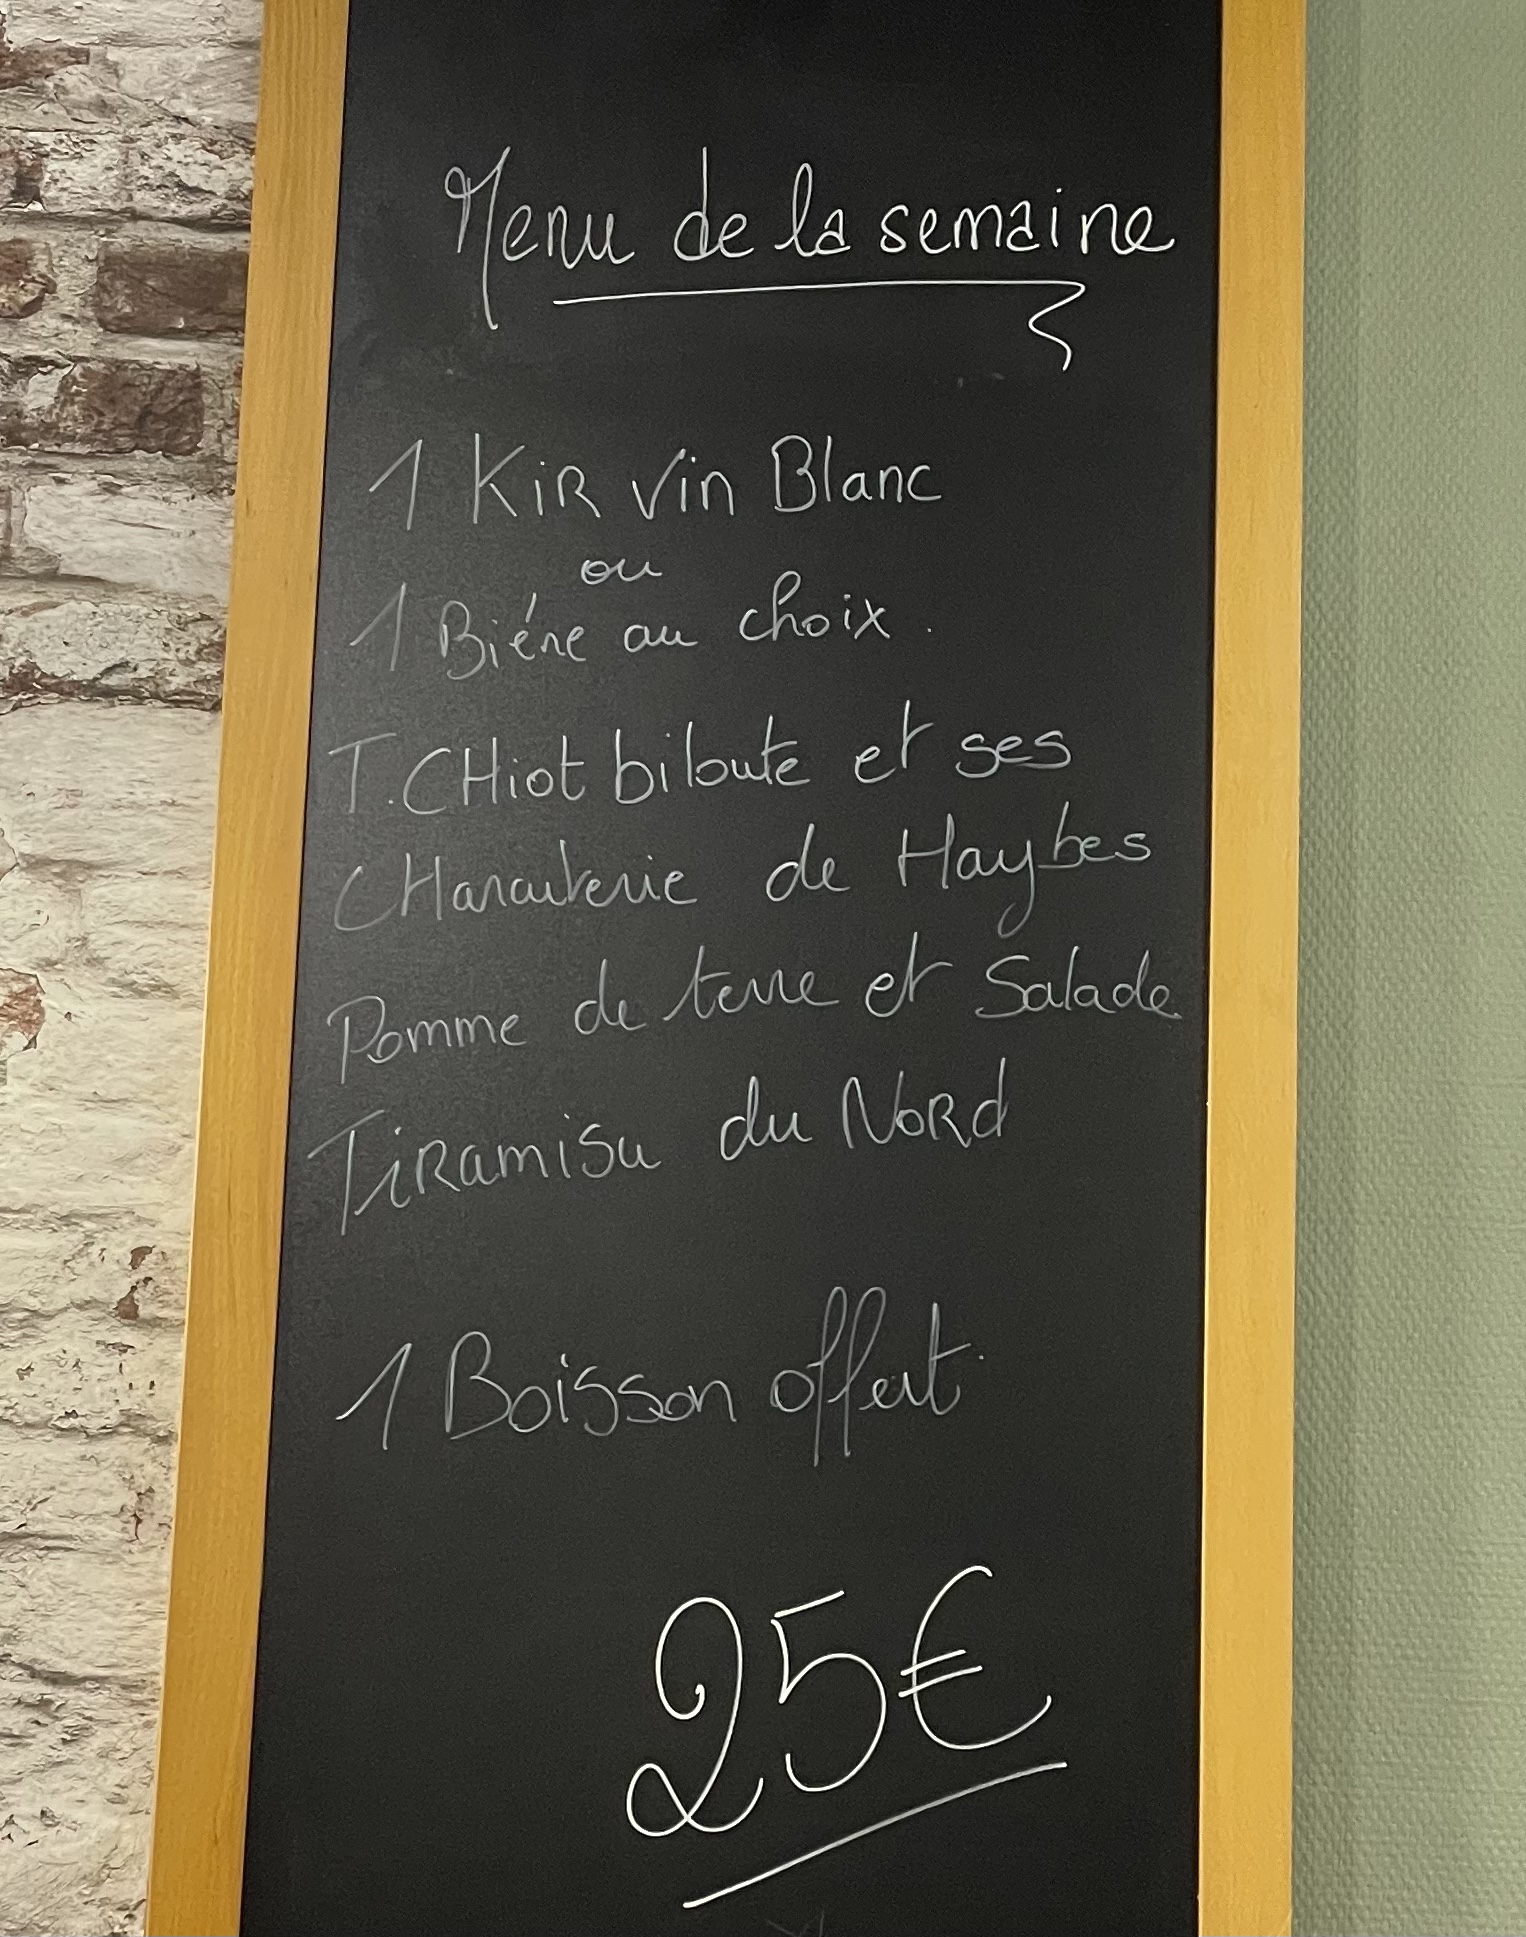 Menu de la semaine
1 KiR Vin Blanc
ou
1 Biére au choix.
T.CHiot biloute et ses
CHarcuterie de Haybes
Pomme de terre et Salade
TiRamisu du NoRd
1 Boisson offert
25€